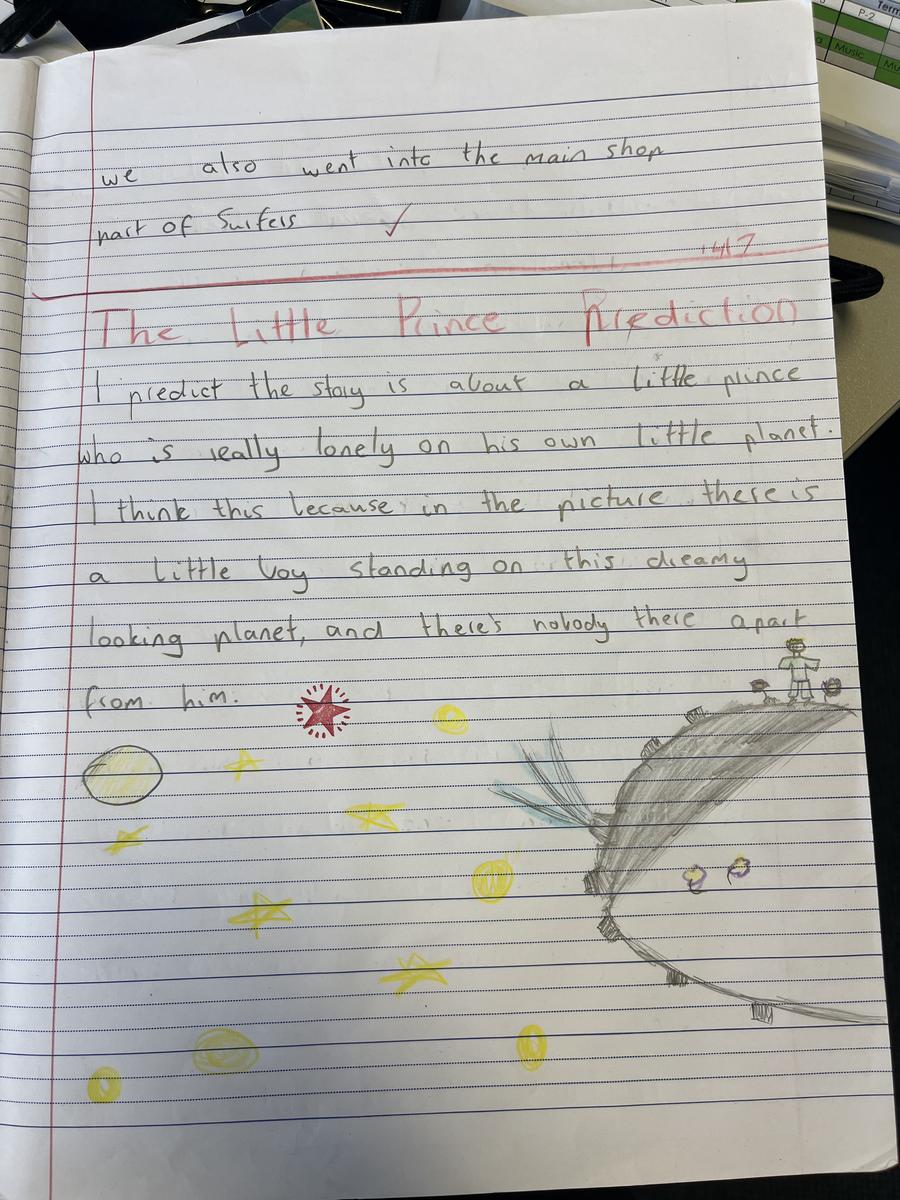 P-2
Music
we also went into the main shop
part of Surfers
The Little Prince Prediction
I predict the story is about a little prince
who is really lonely on his own little planet.
I think this because in the picture there is
a little boy standing on this dreamy
looking planet, and there's nobody there apart
from him.